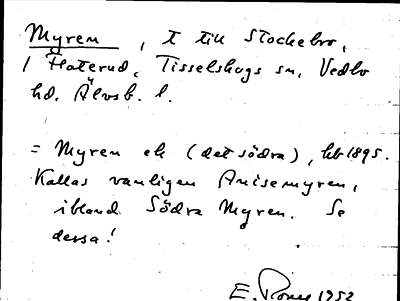 Myren, t till Stockebro,
/ Haterud, Tisselskogs sn, Vedbo
hd, Älvsb. l.
= Myren ek (det södra), hb 1895.
Kallas vanligen Anisemyren,
ibland Södra Myren. Se
dessa!
E. 1952